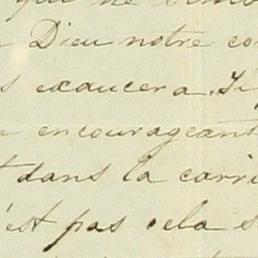 que ne
Dieu notre co
s exaucera. Si
encourageants
dans la carri
'est pas cela s